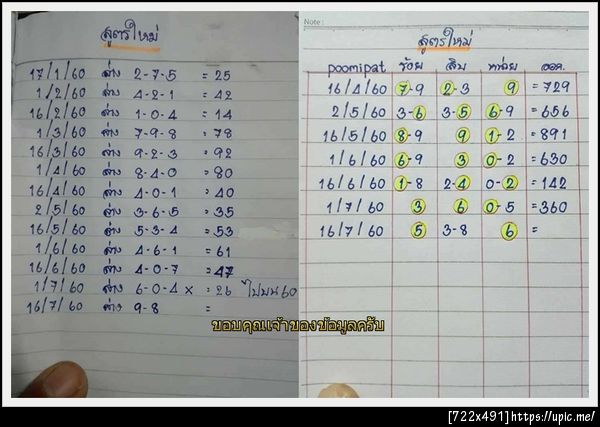 สูตรใหม่
17/1/60 ล่าง 2-7-5 = 25
1/2/60 ล่าง 4-2-1 = 42
16/2/60 ล่าง 1-0-4 = 14
1/3/60 ล่าง 7-9-8 = 78
16/3/60 ล่าง 9-2-3 = 92
1/4/60 ล่าง 8-4-0 = 80
16/4/60 ล่าง 4-0-1 = 40
2/5/60 ล่าง 3-6-5 = 35
16/5/60 ล่าง 5-3-4 = 53
1/6/60 ล่าง 4-6-1 = 61
16/6/60 ล่าง 4-0-7 = 47
1/7/60 ล่าง 6-0-4 × = 26 ไปบน 60
16/7/60 ล่าง 9-8 =
Note :
สูตรใหม่
poomipat ร้อย สิบ หน่วย ออก.
16/4/60 7-9 2-3 9 = 729
2/5/60 3-6 3-5 6-9 = 656
16/5/60 8-9 9 1-2 = 891
1/6/60 6-9 3 0-2 = 630
16/6/60 1-8 2-4 0-2 = 142
1/7/60 3 6 0-5 = 360
16/7/60 5 3-8 6 =
ขอบคุณเจ้าของข้อมูลครับ
[722x491]https://upic.me/